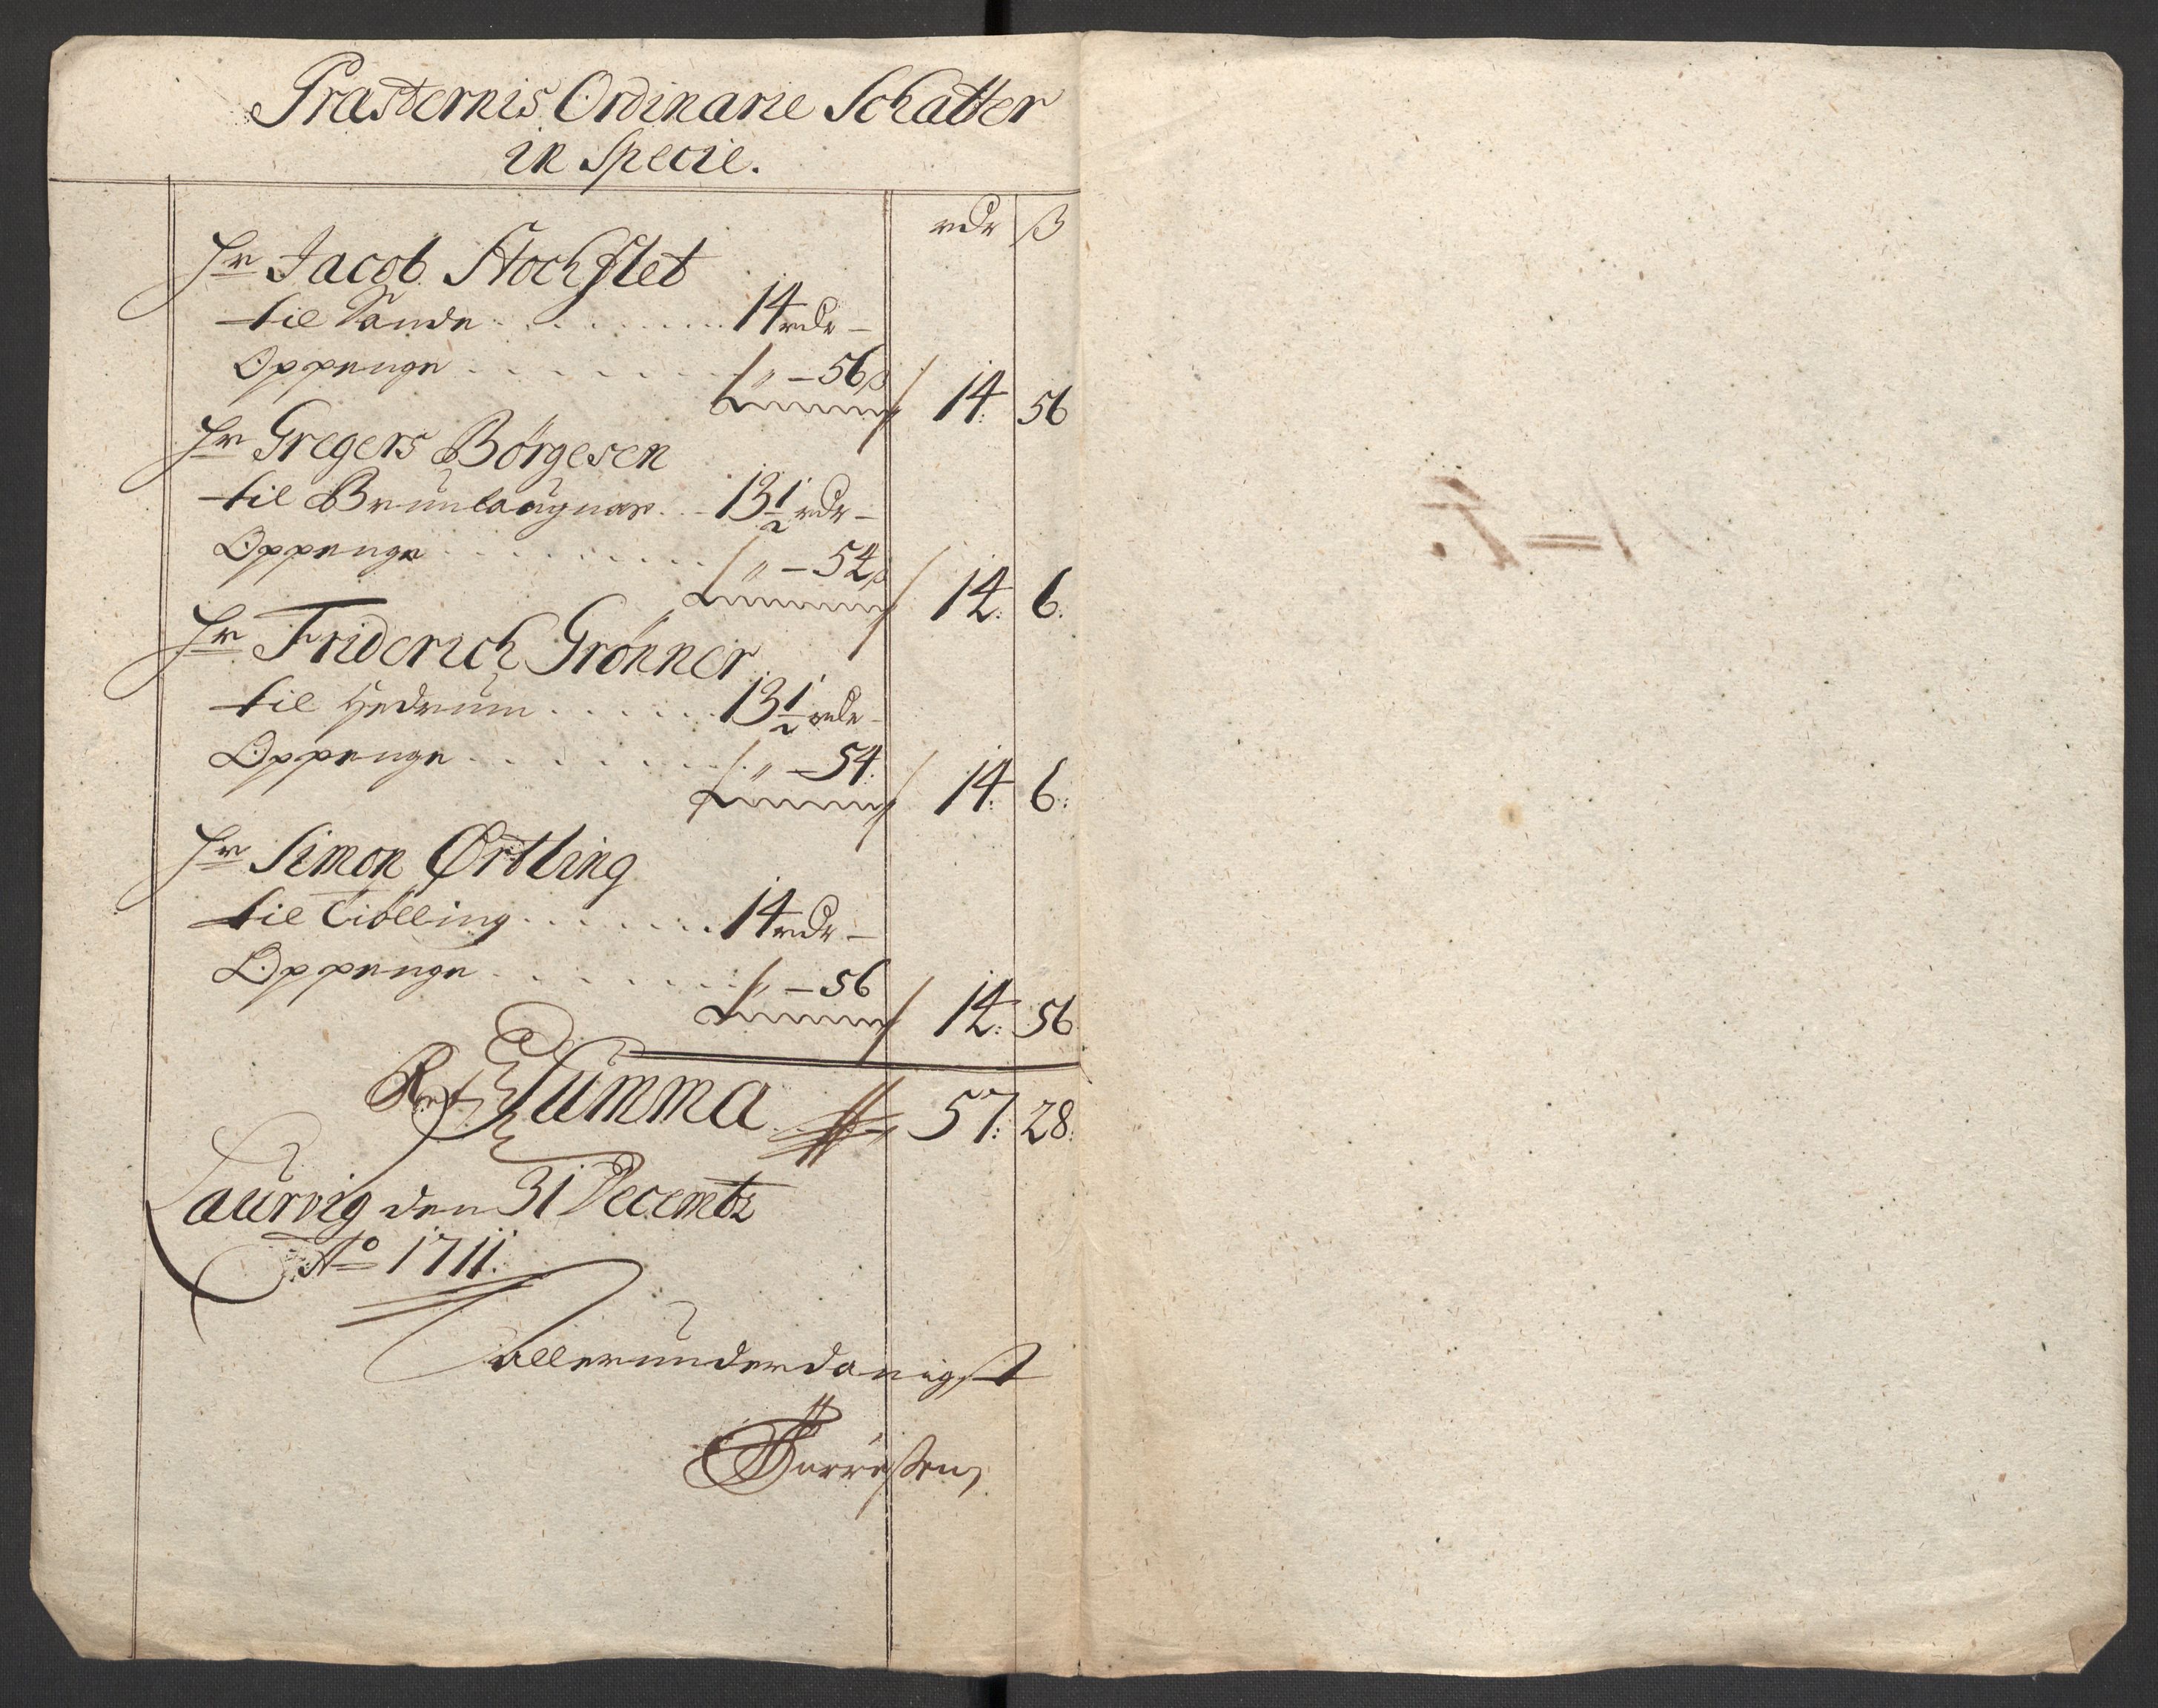 Præsternis Ordinarie Schatter
in Specie.
rdr ß
Hr Jacob Stochflet
til Sande . . . . . . . . 14 rdr –
Oppenge . . . . . . . . „ – 56 ß
Summa 14. 56
Hr Gregers Börgesen
til Brunlaugnæs . . 13 1/2 rdr –
Oppenge . . . . . . . . „ – 54 ß
Summa 14. 6.
Hr Friderich Grönner
til Hedrum . . . . . . 13 1/2 rdr –
Oppenge . . . . . . . . „ – 54.
Summa 14. 6.
Hr Simon Ørtling
til Tiölling . . . . . . . 14 rdr –
Oppenge . . . . . . . . „ – 56
Summa 14. 56
Summa 57. 28.
Laurvig den 31 Decembr
Ao 1711.
allerunderdanigst